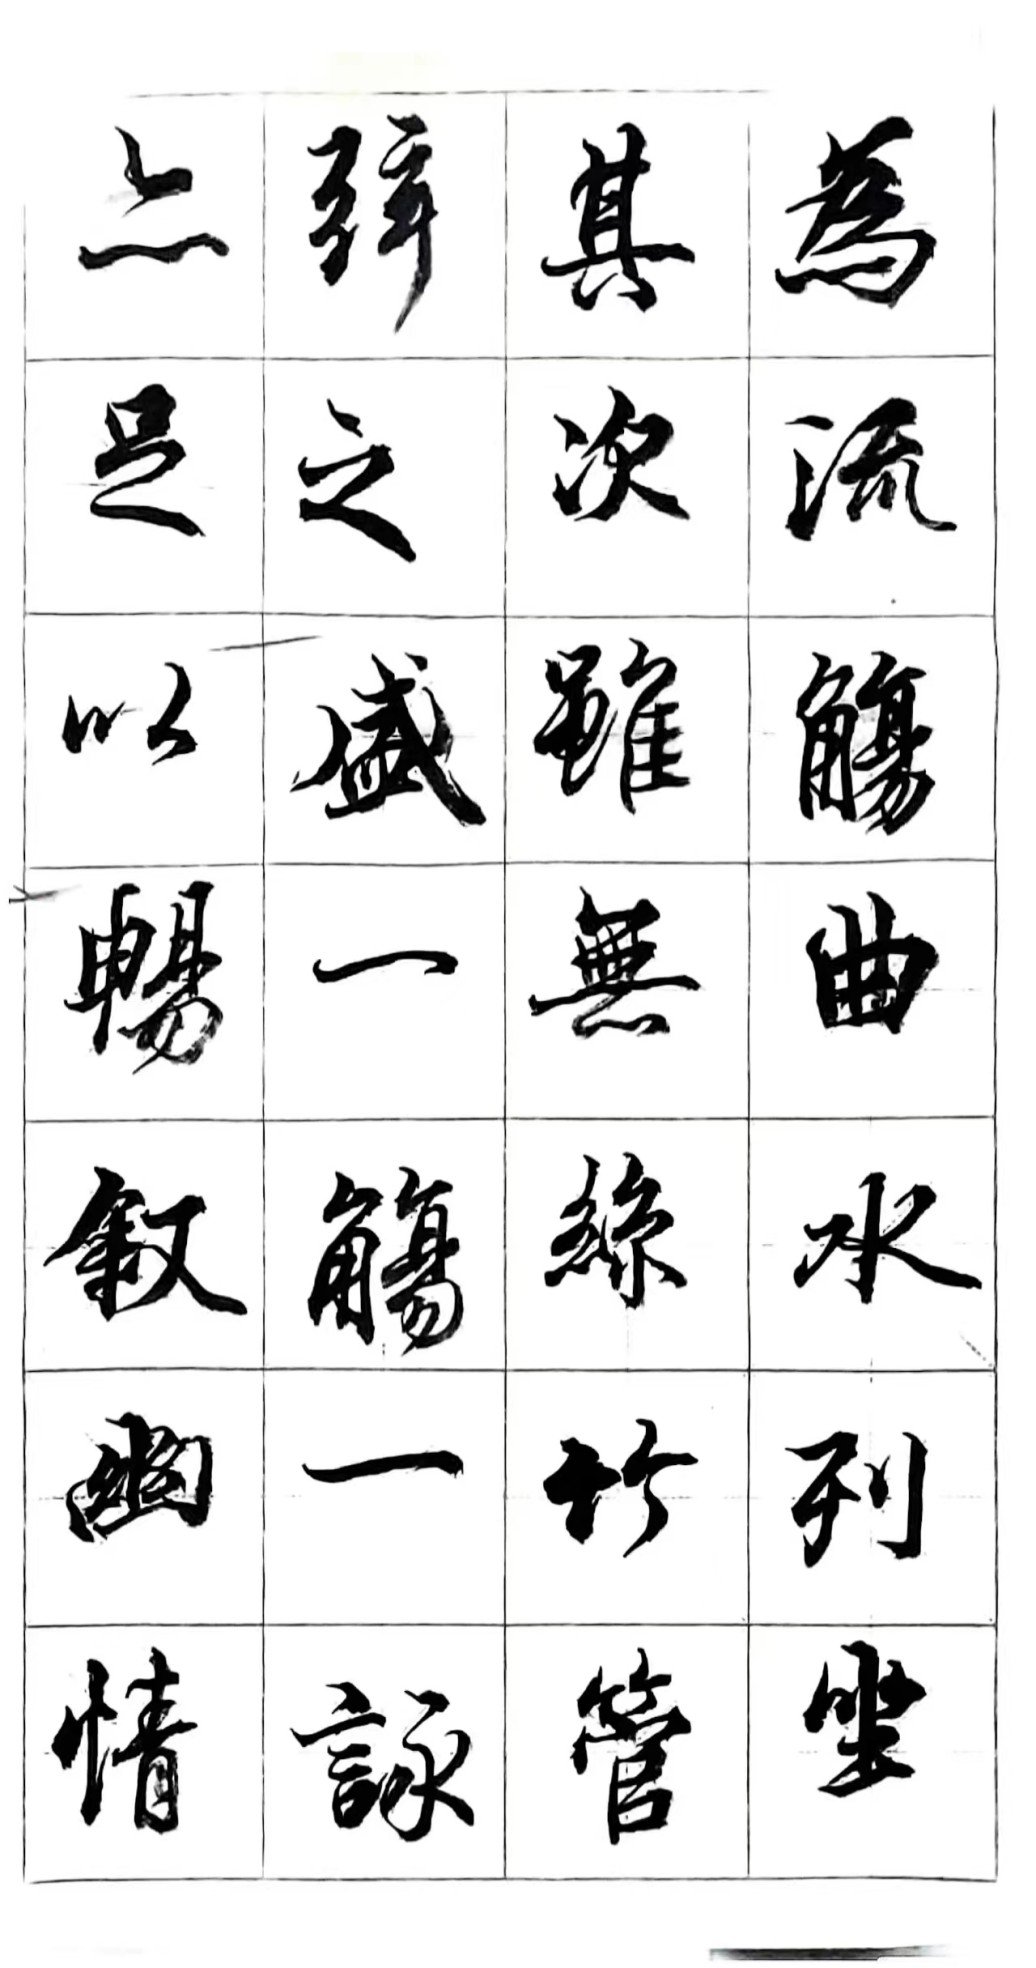 為流觴曲水列坐
其次雖無絲竹管
弦之盛一觴一詠
亦足以暢叙幽情